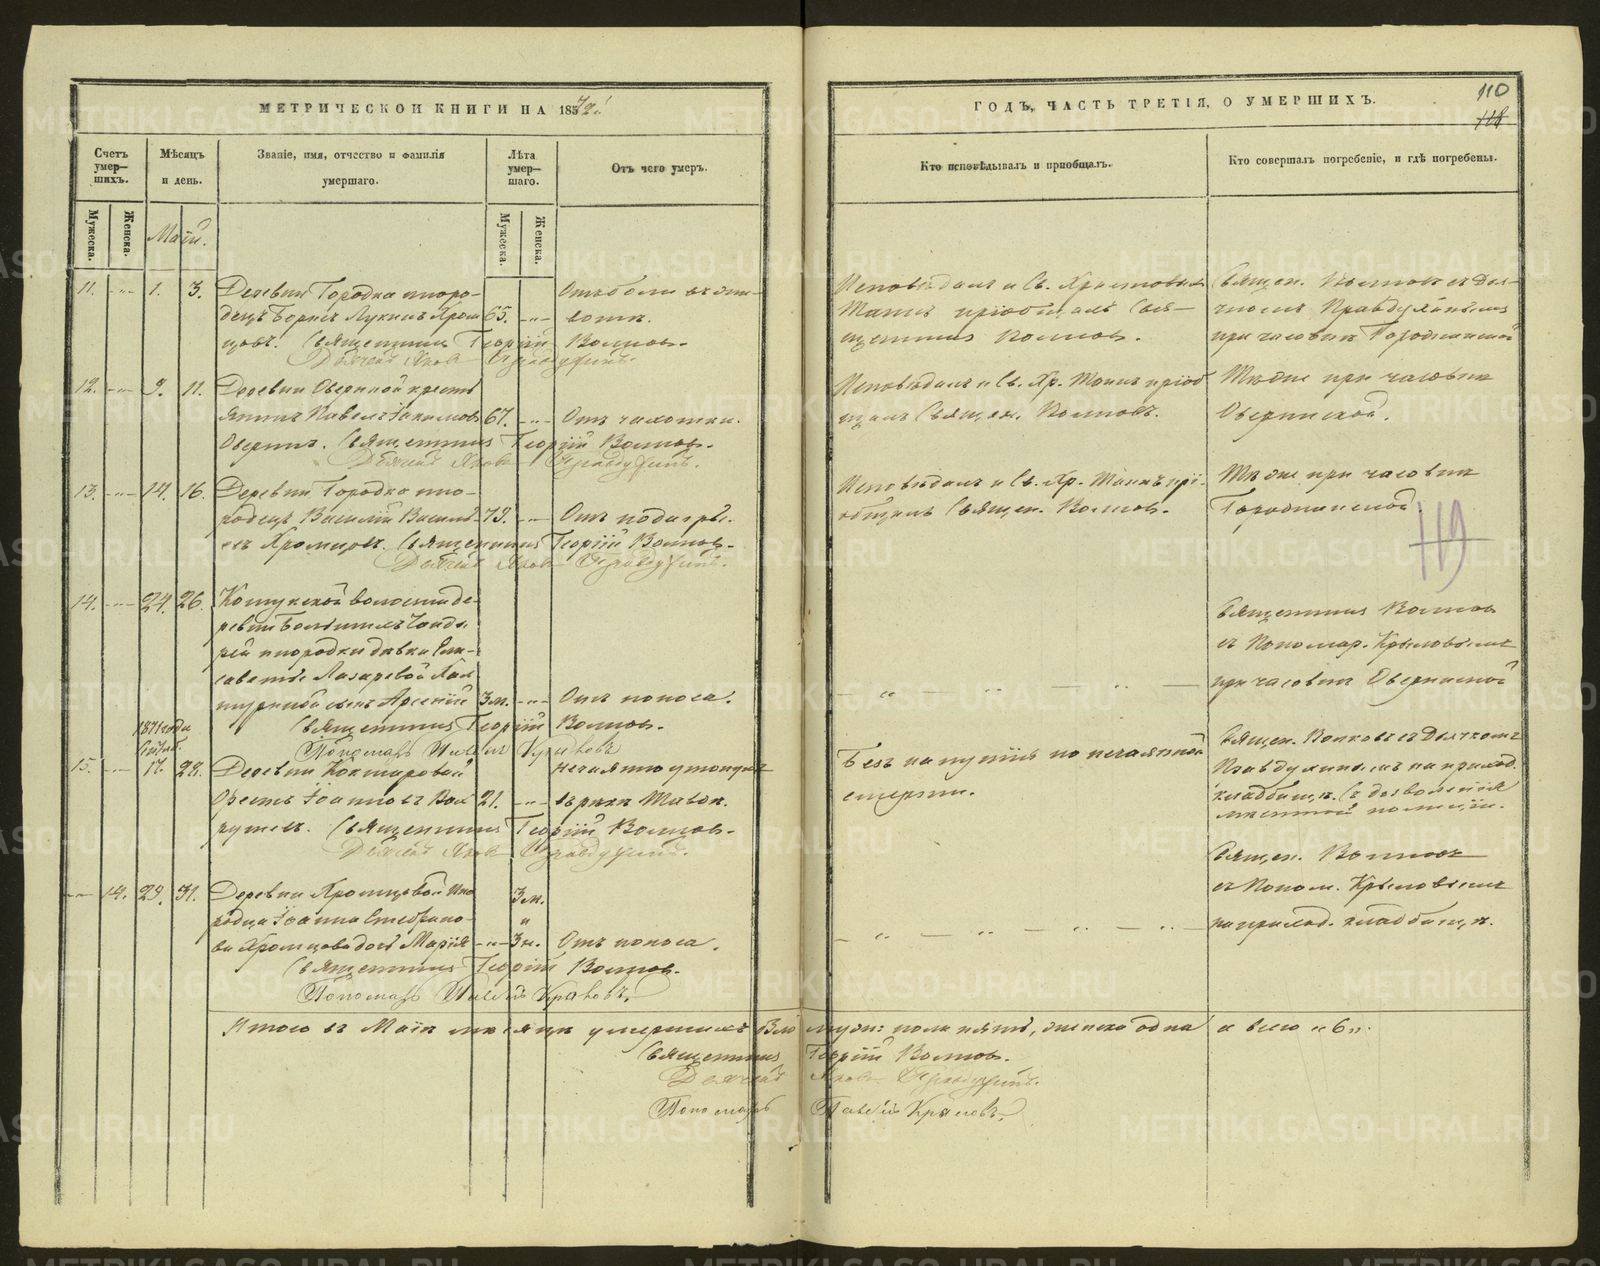 МЕТРИЧЕСКОЙ КНИГИ НА 1872
ГОДЪ, ЧАСТЬ ТРЕТІЯ, О УМЕРШИХЪ.
110
118
Счетъ умер-шихъ.
Мѣсяцъ и день.
Званіе, имя, отчество и фамилія умершаго.
Лѣта умер-шаго.
Отъ чего умеръ.
Кто исповѣдывалъ и пріобщалъ.
Кто совершалъ погребеніе, и гдѣ погребены.
Мужеска.
Женска.
Май.
Мужеска.
Женска.
11. -„- 1. 3. Деревни Городка иноро-
децъ Борисъ Лукинъ Хром 65. -„-
цовъ. Священникъ Георгій Волковъ.
Дьячекъ Яковъ Правдухинъ.
Исповѣдалъ и Св. Христовыхъ
Таинъ пріобщалъ Свя-
щенникъ Волковъ.
Священ. Волковъ съ Дья-
чкомъ Правдухинымъ
при часовнѣ Городкинской
12. -„- 9. 11. Деревни Оверкиной кресть
янинъ Павелъ Іакимовъ 67. -„- Отъ чахотки.
Оверкинъ. Священникъ Георгій Волковъ.
Дьячекъ Яковъ Правдухинъ.
Исповѣдалъ и Св. Хр. Таинъ пріоб
щалъ Священ. Волковъ.
Тѣ же при часовнѣ
Оверкинской.
13. -„- 14. 16. Деревни Городка ино-
родецъ Василій Василь- 73. -„- Отъ подагры.
евъ Хромцовъ. Священникъ Георгій Волковъ.
Дьячекъ Яковъ Правдухинъ.
Исповѣдалъ и Св. Хр. Таинъ прі-
общалъ Священ. Волковъ.
Тѣ же при часовнѣ
Городкинской.
119
14. -„- 24. 26. Кошукской волости де-
ревни
рей инородки дѣвки Ели-
саветы Лазаревой
сынъ Арсеній 3 м. -„- Отъ поноса.
Священникъ Георгій Волковъ.
Пономарь Крыловъ
Священникъ Волковъ
съ Пономар. Крыловымъ
при часовнѣ Оверкинской
1871 года
15. -„- 17. 28. Деревни Кокшаровой
Орестъ Іоанновъ Вах 21. -„-
рушевъ. Священникъ Георгій Волковъ.
Дьячекъ Яковъ Правдухинъ.
нечаянно утонулъ
въ рѣкѣ Тавдѣ.
Безъ напутія по нечаянной
смерти.
Священ. Волковъ съ Дьячкомъ
Правдухинымъ на приход.
кладбищѣ. Съ дозволенія
мѣстной полиціи.
-„- 14. 29. 31. Деревни Хромцовой ино
родца Іоанна Стефано-
ва Хромцова дочь Марія -„- 3 м. „ 3 н. Отъ поноса.
Священникъ Георгій Волковъ.
Пономарь Крыловъ.
Священ. Волковъ
съ Поном. Крыловымъ
на приход. кладбищѣ.
Итого въ Маѣ мѣсяцѣ умершихъ было муж: пола пять, женска одна а всего „6„.
Священникъ Георгій Волковъ.
Дьячекъ Яковъ Правдухинъ.
Пономарь Крыловъ.
METRIKI.GASO-URAL.RU